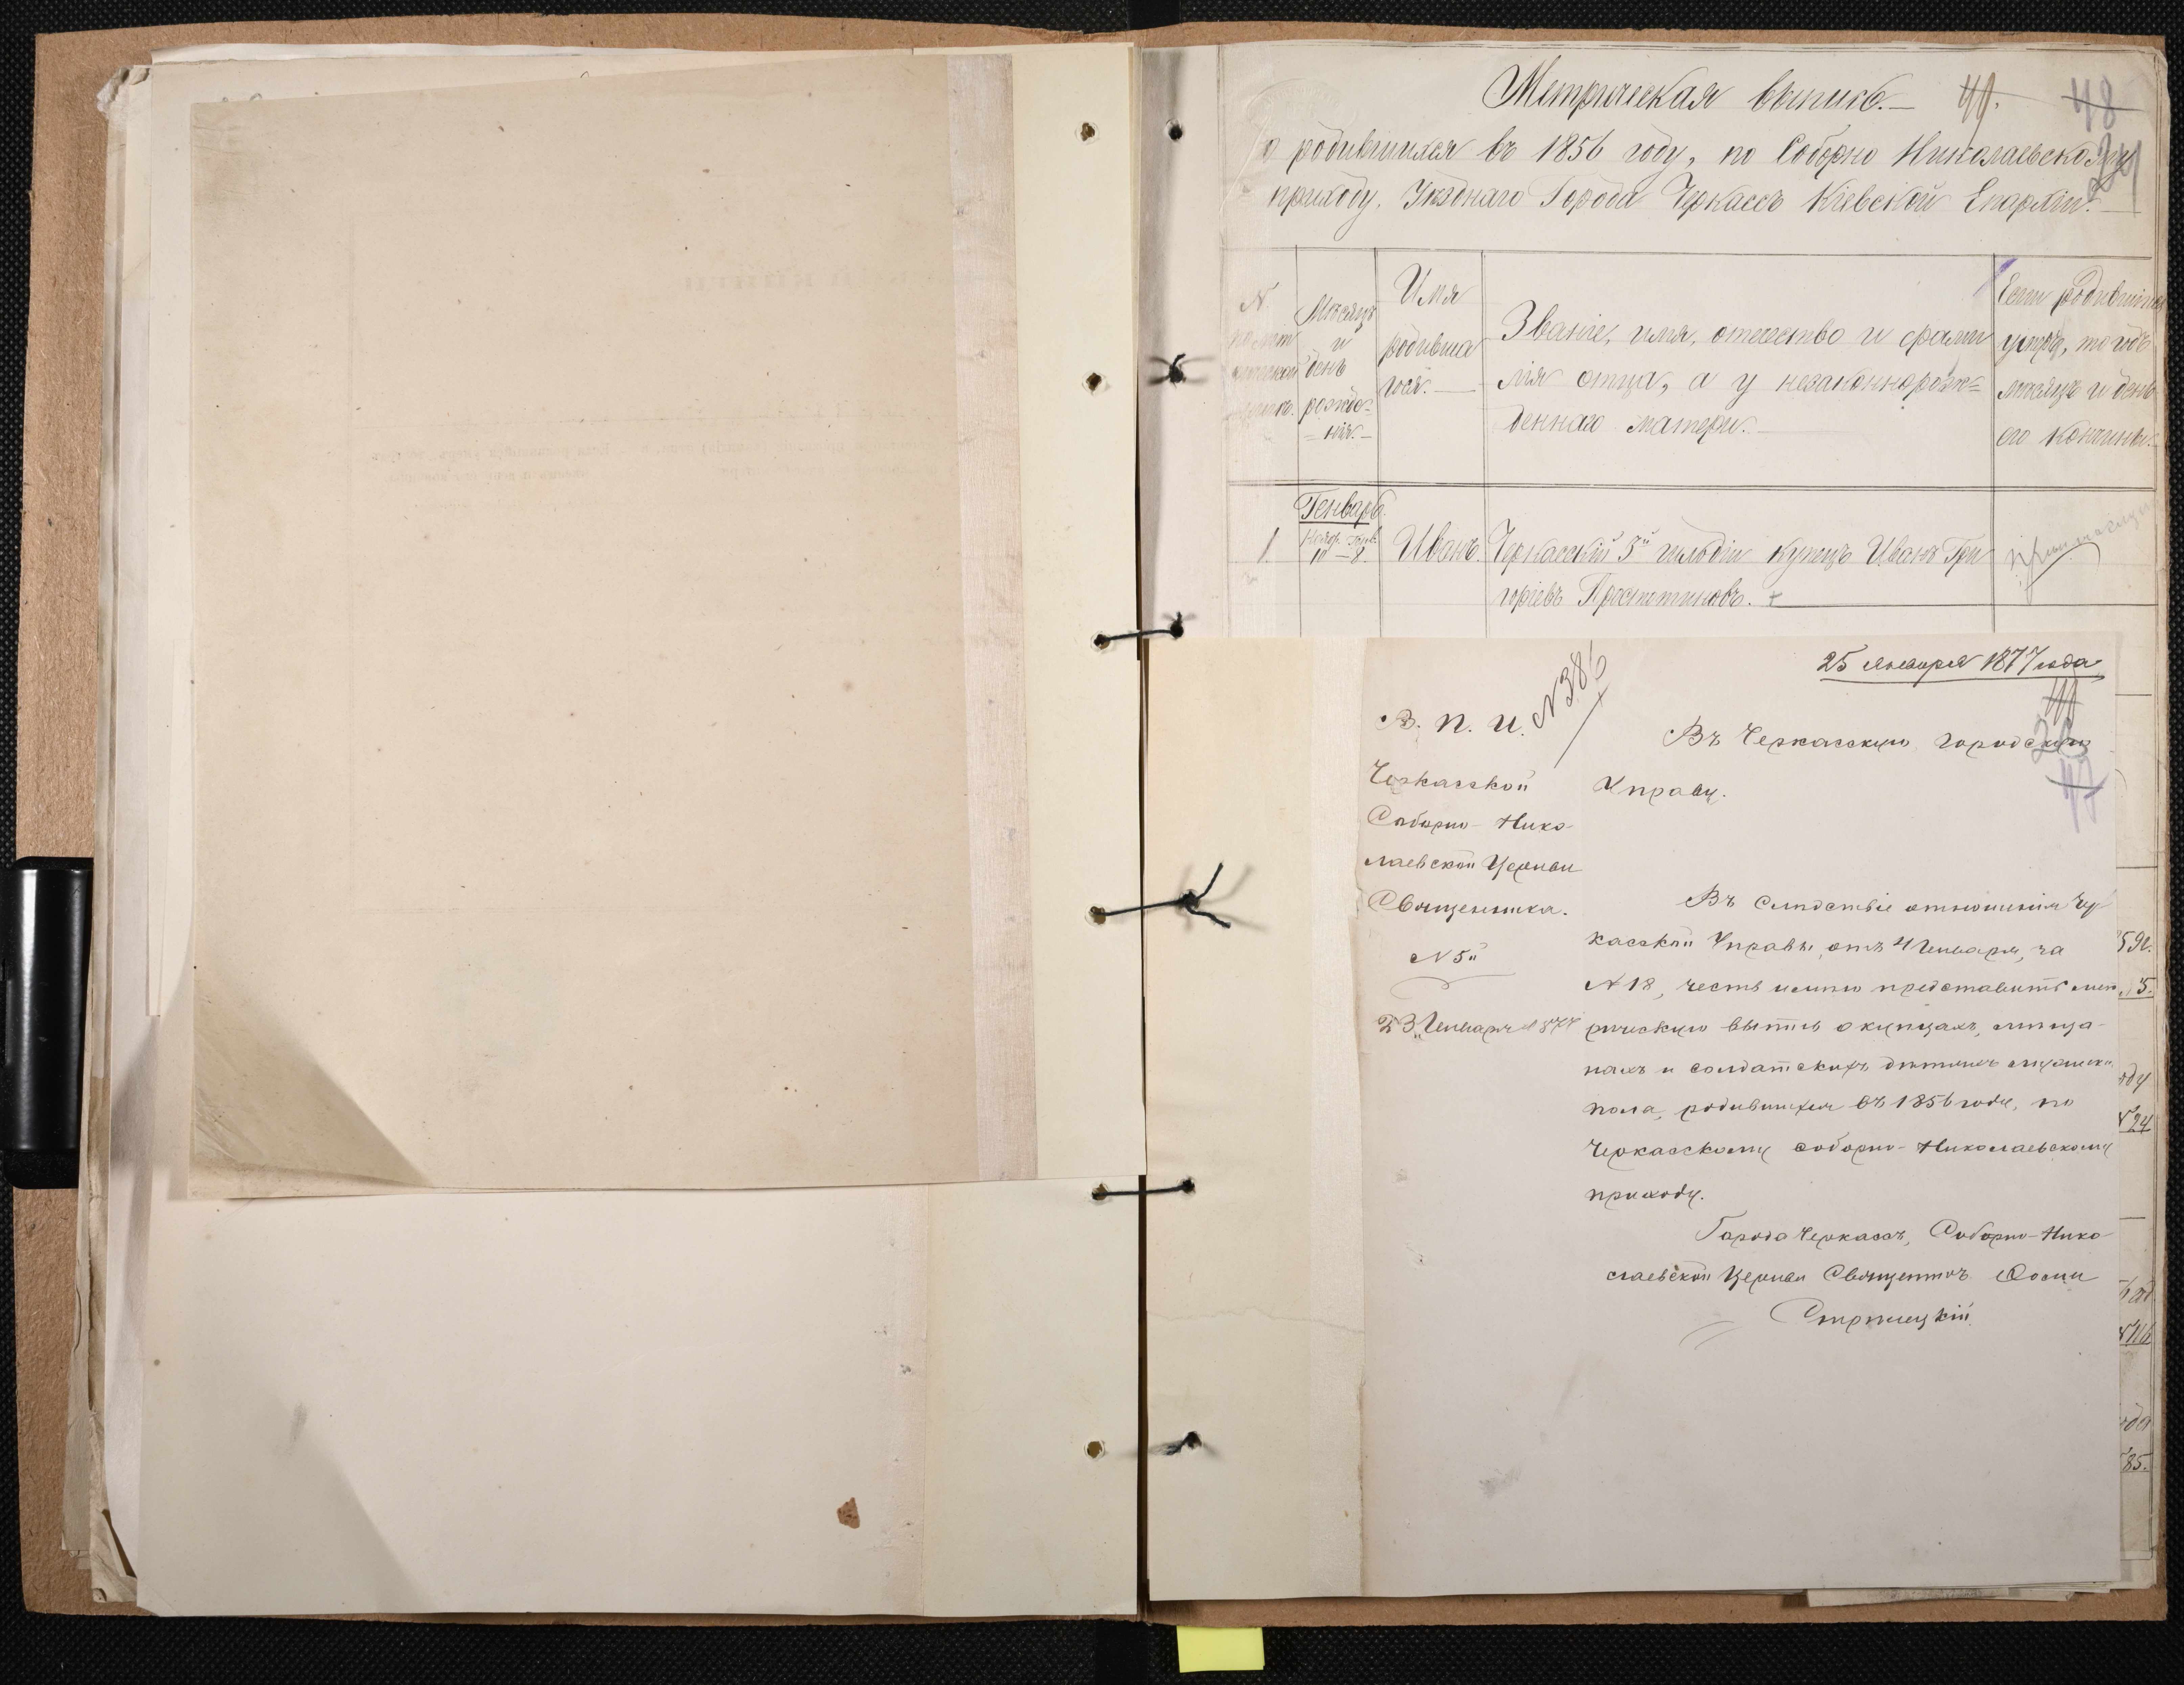 Метрическая выпись.— 49. 48
о родившихся въ 1856 году, по Соборно Николаевскому
приходу, Уѣзднаго Города Черкассъ Кіевской Епархіи.—
Мѣсяцъ
и
день
рожде=
=нія.—
Имя
родивша
гося.—
Званіе, имя, отчество и фами
лія отца, а у незаконнорож=
деннаго матери.—
Если родившійся
умеръ, то годъ
мѣсяцъ и день
его кончины.—
Генварь.
1. 10 — 8. Иванъ. Черкасскій 3й гильдіи купецъ Иванъ Гри
горіевъ
25 января 1877 года
N 386
В. П. И.
Черкасской
Соборно-Нико-
лаевской Церкви
Священника.
N 5й
23 Генваря 1877
Въ Черкасскую городскую
Управу.
Въ слѣдствіе отношенія Чер-
касской Управы, отъ 4 Генваря, за
N 18, честь имѣю представить мет
рическую выпись о купцахъ, мѣща-
нахъ и солдатскихъ дѣтяхъ мужеск.
пола, родившихся въ 1856 году, по
Черкасскому соборно-Николаевскому
приходу.
Города Черкассъ, Соборно-Нико
лаевской Церкви Священникъ
59г.
5.
оду
N 24
ода
85.